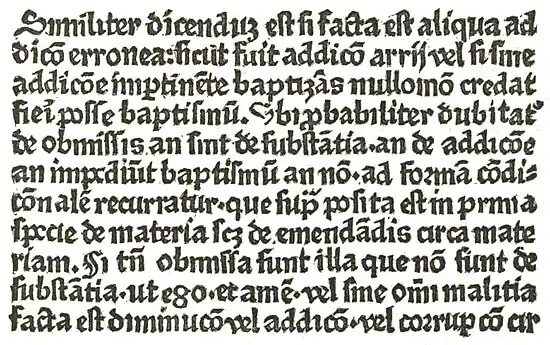 Similiter dicenduʒ est si facta est aliqua ad
dicōn erronea: sicut fuit addicōn arrij vel si sine
addicōe imꝑtinēte baptizās nullomōn credat
fieri posse baptismū. Ubi ꝓbabiliter dubitatᷣ
de obmissis. an sint de substātia. an de addicōe
an impediūt baptismū an nō. ad formā cōdi-
cōnalē recurratur. que sup̄ posita est in prmia
specie de materia scʒ de emendādis circa mate
riam. Si tn̄ obmissa sunt illa que nō sunt de
substātia. ut ego. et amē. vel sine om̄i malitia
facta est diminucō vel addicō. vel corrupcō cir